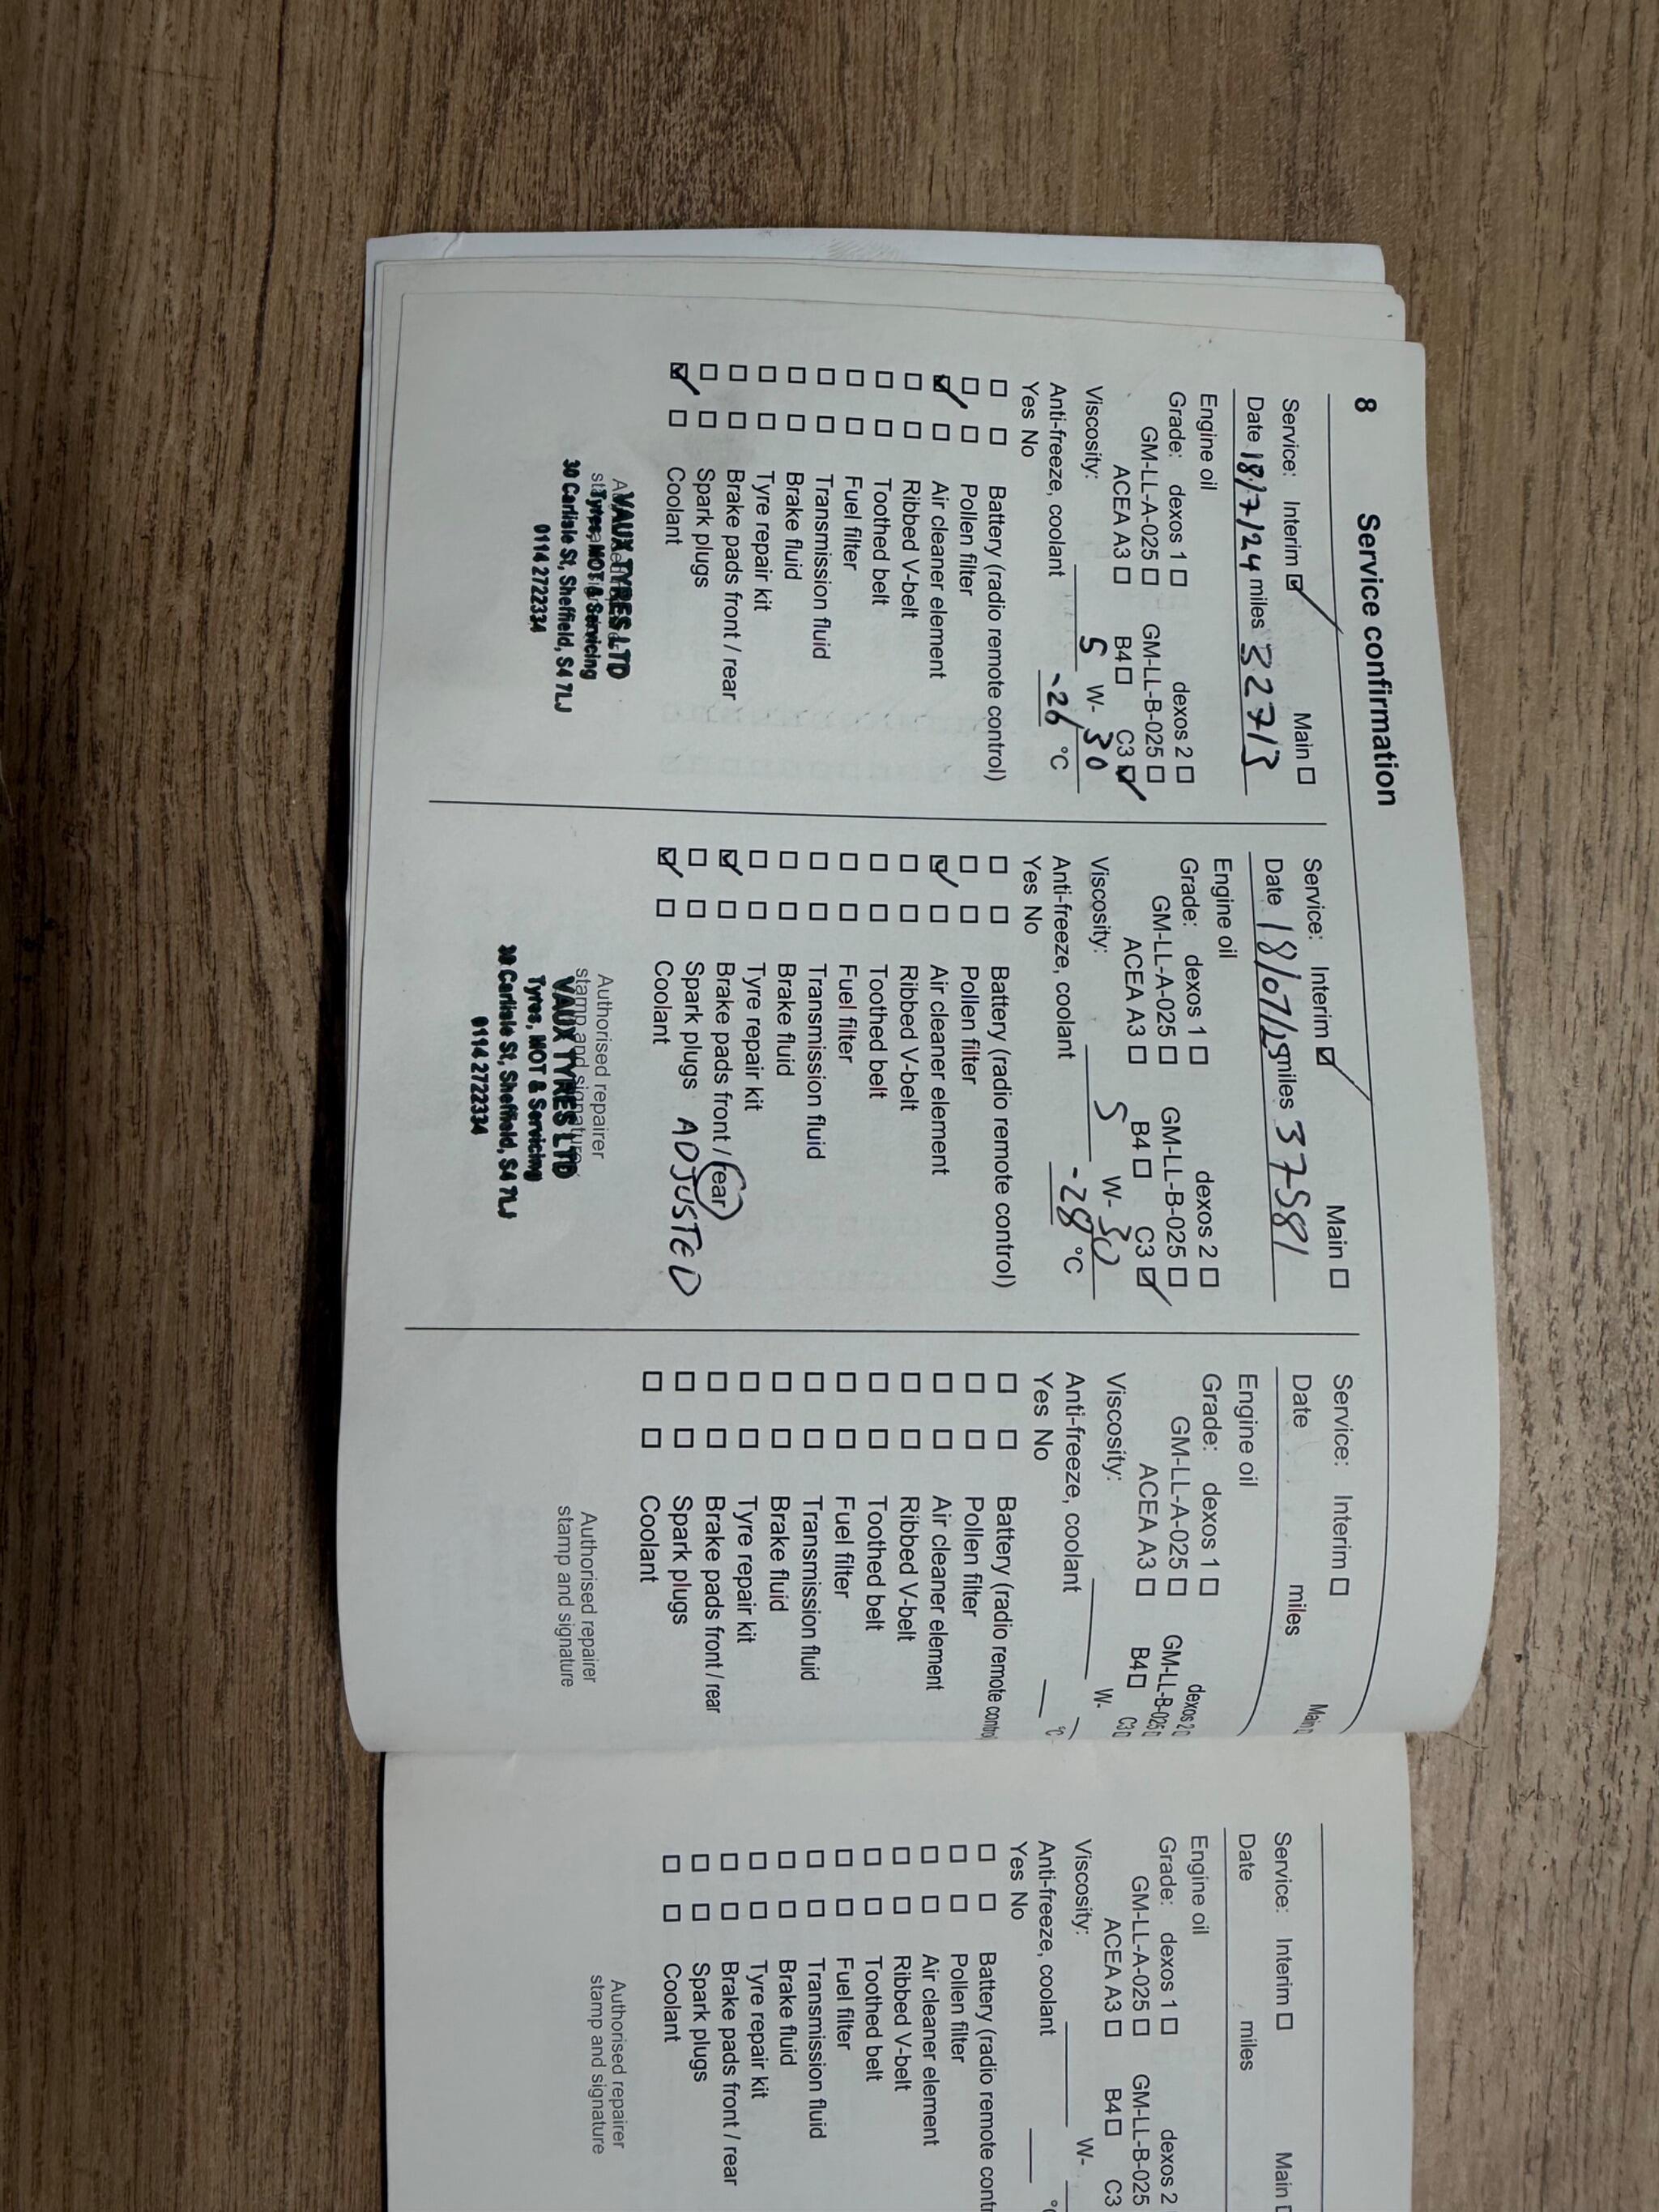 8 Service confirmation
Service: Interim ☑ Main ☐
Date 18/7/24 miles 32713
Engine oil
Grade: dexos 1 ☐ dexos 2 ☐
GM-LL-A-025 ☐ GM-LL-B-025 ☐
ACEA A3 ☐ B4 ☐ C3 ☑
Viscosity: 5 W- 30
Anti-freeze, coolant -26 °C
Yes No
☐ ☐ Battery (radio remote control)
☐ ☐ Pollen filter
☑ ☐ Air cleaner element
☐ ☐ Ribbed V-belt
☐ ☐ Toothed belt
☐ ☐ Fuel filter
☐ ☐ Transmission fluid
☐ ☐ Brake fluid
☐ ☐ Tyre repair kit
☐ ☐ Brake pads front / rear
☐ ☐ Spark plugs
☑ ☐ Coolant
VAUX TYRES LTD
Tyres, MOT & Servicing
30 Carlisle St, Sheffield, S4 7LJ
0114 2722334
Service: Interim ☑ Main ☐
Date 18/07/25 miles 37581
Engine oil
Grade: dexos 1 ☐ dexos 2 ☐
GM-LL-A-025 ☐ GM-LL-B-025 ☐
ACEA A3 ☐ B4 ☐ C3 ☑
Viscosity: 5 W- 30
Anti-freeze, coolant -28 °C
Yes No
☐ ☐ Battery (radio remote control)
☐ ☐ Pollen filter
☑ ☐ Air cleaner element
☐ ☐ Ribbed V-belt
☐ ☐ Toothed belt
☐ ☐ Fuel filter
☐ ☐ Transmission fluid
☐ ☐ Brake fluid
☐ ☐ Tyre repair kit
☑ ☐ Brake pads front / rear
☐ ☐ Spark plugs ADJUSTED
☑ ☐ Coolant
Authorised repairer
stamp and signature
VAUX TYRES LTD
Tyres, MOT & Servicing
30 Carlisle St, Sheffield, S4 7LJ
0114 2722334
Service: Interim ☐ Main ☐
Date miles
Engine oil
Grade: dexos 1 ☐ dexos 2 ☐
GM-LL-A-025 ☐ GM-LL-B-025 ☐
ACEA A3 ☐ B4 ☐ C3 ☐
Viscosity: W-
Anti-freeze, coolant °C
Yes No
☐ ☐ Battery (radio remote control)
☐ ☐ Pollen filter
☐ ☐ Air cleaner element
☐ ☐ Ribbed V-belt
☐ ☐ Toothed belt
☐ ☐ Fuel filter
☐ ☐ Transmission fluid
☐ ☐ Brake fluid
☐ ☐ Tyre repair kit
☐ ☐ Brake pads front / rear
☐ ☐ Spark plugs
☐ ☐ Coolant
Authorised repairer
stamp and signature
Service: Interim ☐ Main
Date miles
Engine oil
Grade: dexos 1 ☐ dexos 2
GM-LL-A-025 ☐ GM-LL-B-025
ACEA A3 ☐ B4 ☐ C3
Viscosity: W-
Anti-freeze, coolant °
Yes No
☐ ☐ Battery (radio remote contr
☐ ☐ Pollen filter
☐ ☐ Air cleaner element
☐ ☐ Ribbed V-belt
☐ ☐ Toothed belt
☐ ☐ Fuel filter
☐ ☐ Transmission fluid
☐ ☐ Brake fluid
☐ ☐ Tyre repair kit
☐ ☐ Brake pads front / rear
☐ ☐ Spark plugs
☐ ☐ Coolant
Authorised repairer
stamp and signature